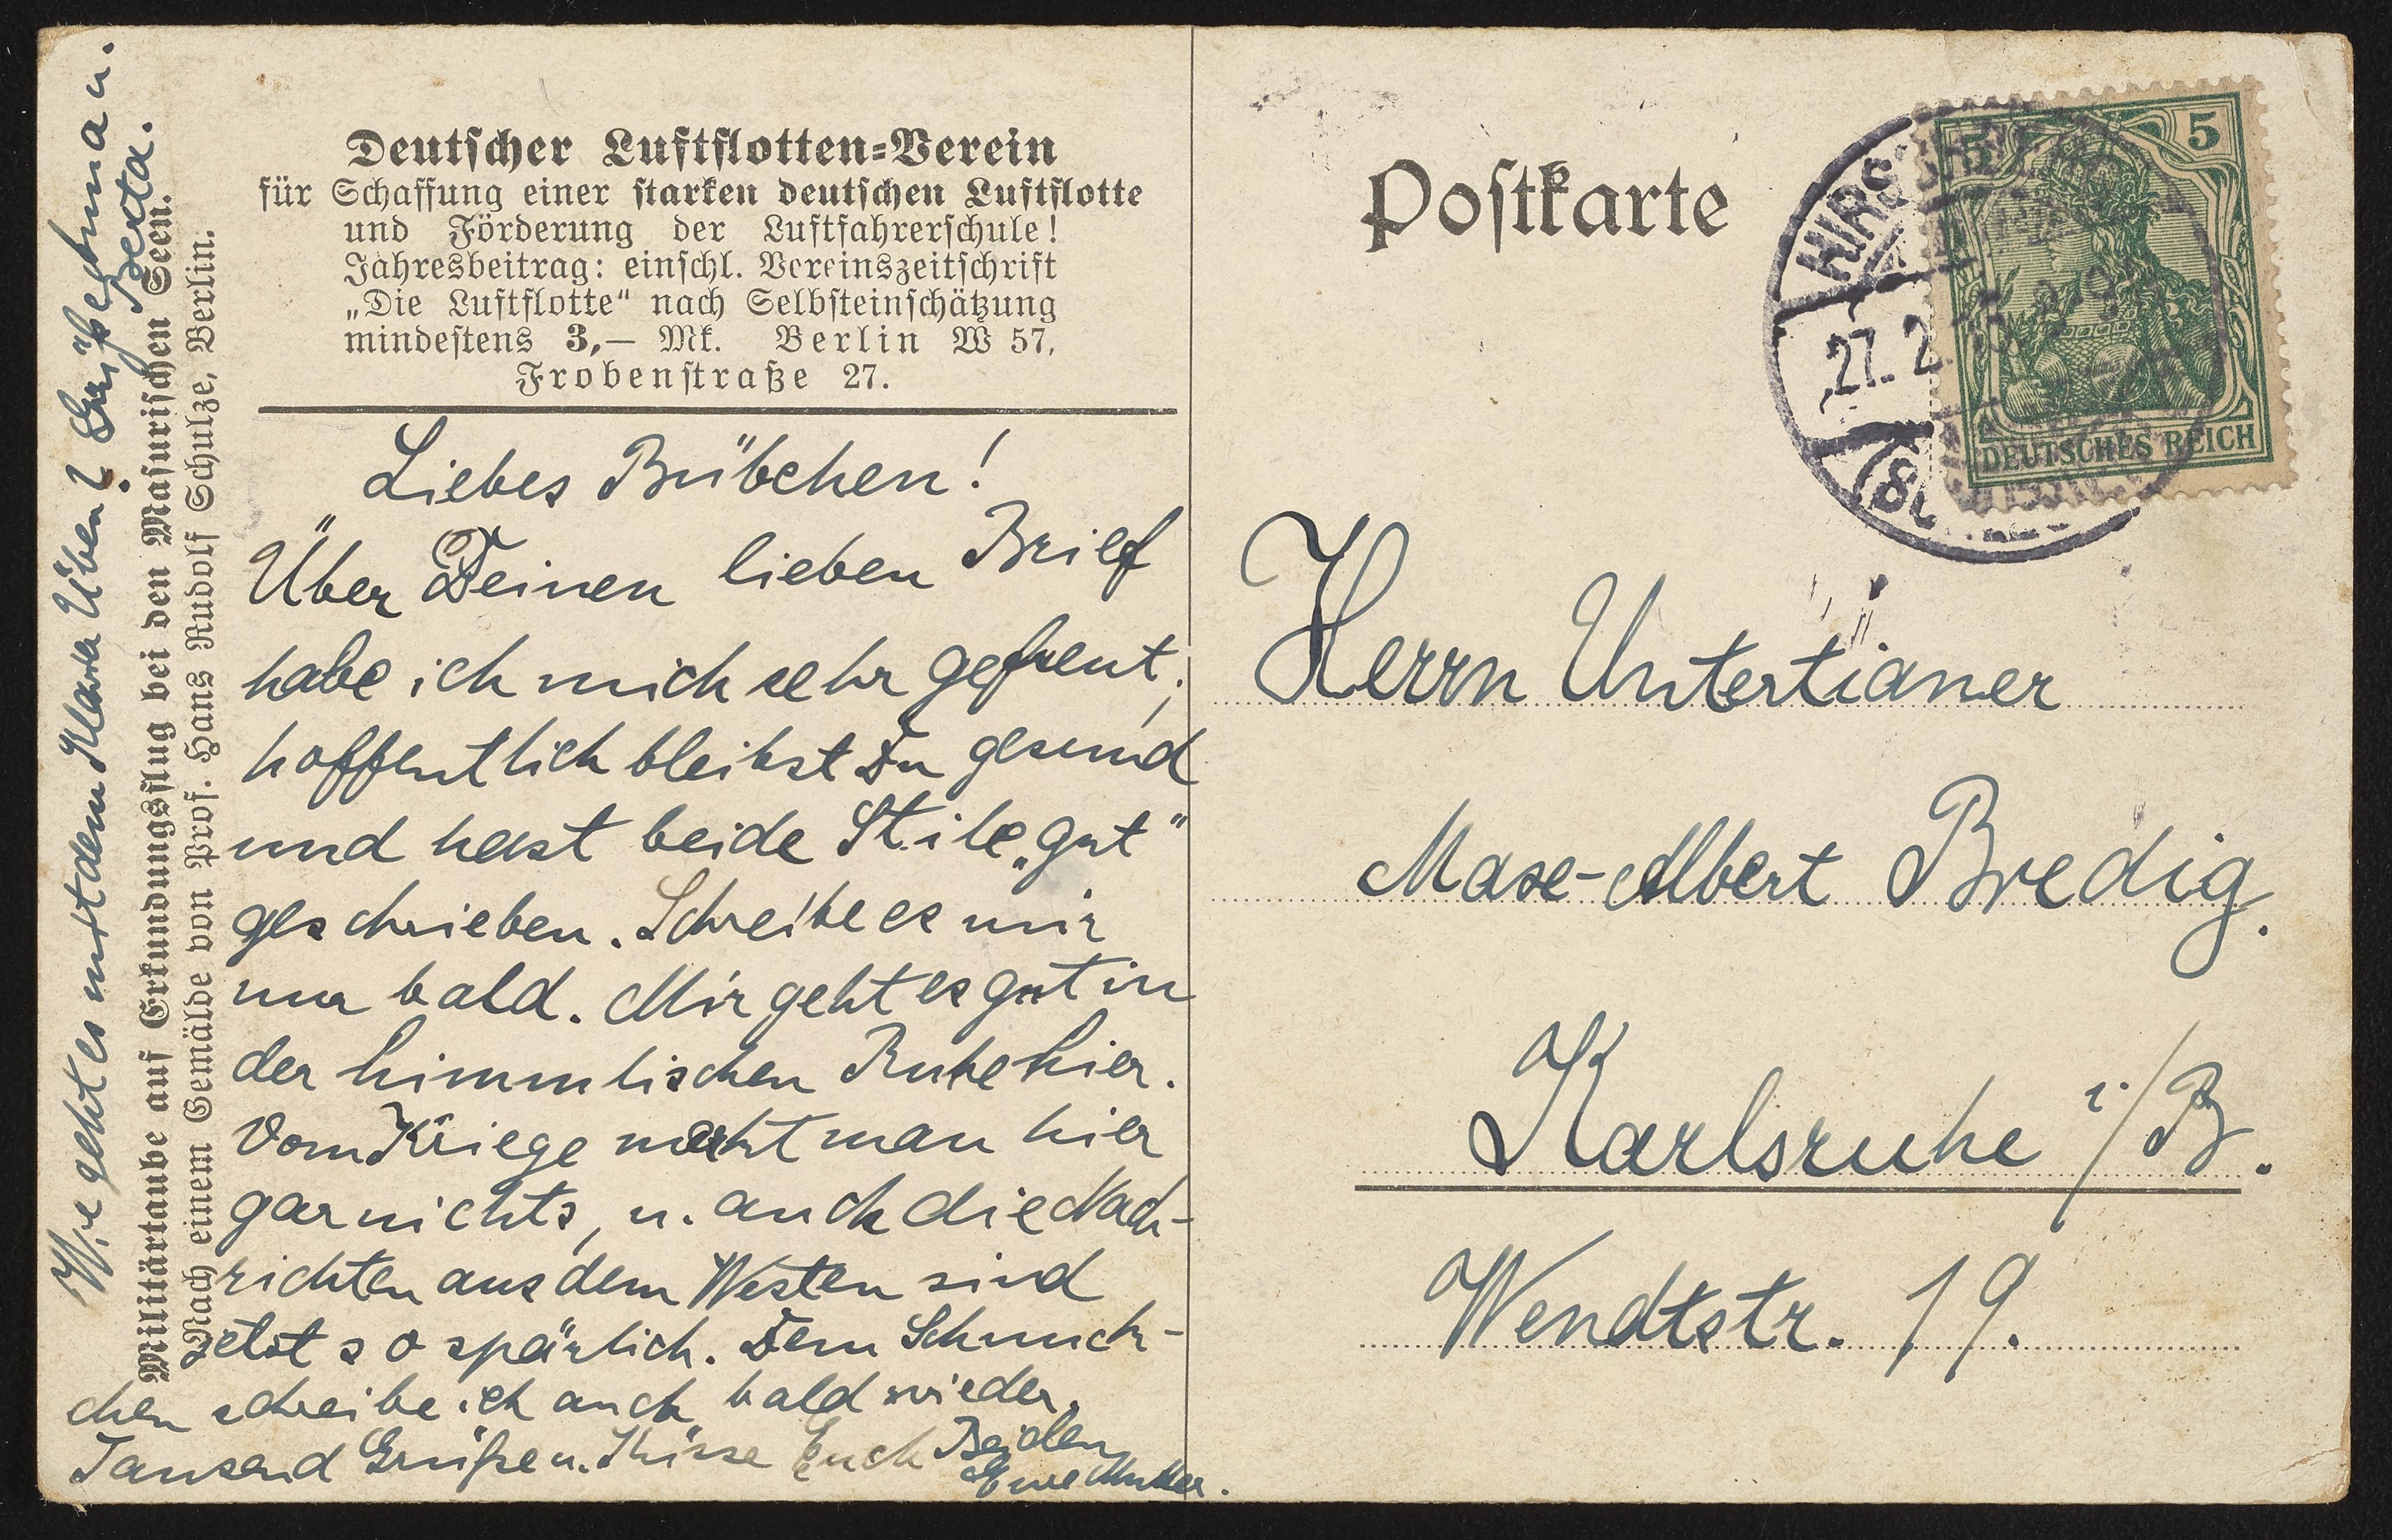 Deutscher Luftflotten-Verein
für Schaffung einer starken deutschen Luftflotte
und Förderung der Luftfahrerschule!
Jahresbeitrag: einschl. Vereinszeitschrift
„Die Luftflotte“ nach Selbsteinschätzung
mindestens 3,— Mk. Berlin W 57,
Frobenstraße 27.
Liebes Bübchen!
Über Deinen lieben Brief
habe ich mich sehr gefreut;
hoffentlich bleibst Du gesund
und hast beide Stile „gut“
geschrieben. Schreibe es mir
nur bald. Mir geht es gut in
der himmlischen Ruhe hier.
Vom Kriege merkt man hier
gar nichts, u. auch die Nach-
richten aus dem Westen sind
jetzt so spärlich. Dem Schnuck-
chen schreibe ich auch bald wieder.
Tausend Grüße u. Küsse Euch Beiden
Eure Mutter.
Wie geht es mit dem Klavier Üben? Grüße Anna u.
Berta.
Militärtaube auf Erkundungsflug bei den Masurischen Seen.
Nach einem Gemälde von Prof. Hans Rudolf Schulze, Berlin.
Postkarte
5 5
DEUTSCHES REICH
HIRS
27. 2
Herrn Untertianer
Maxe-Albert Bredig.
Karlsruhe i/B.
Wendtstr. 19.